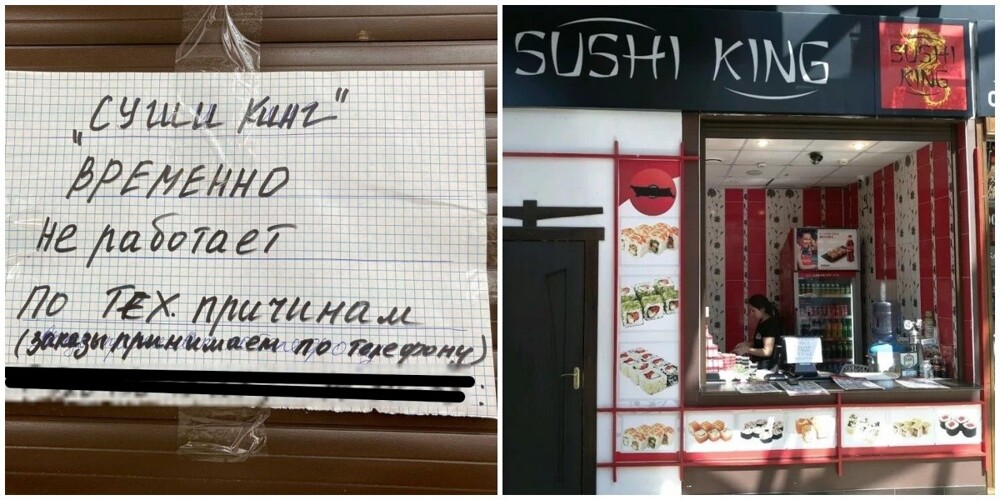 "СУШИ КИНГ"
ВРЕМЕННО
не работает
по ТЕХ. причинам
(заказы принимаем по телефону)
SUSHI KING
SUSHI
KING